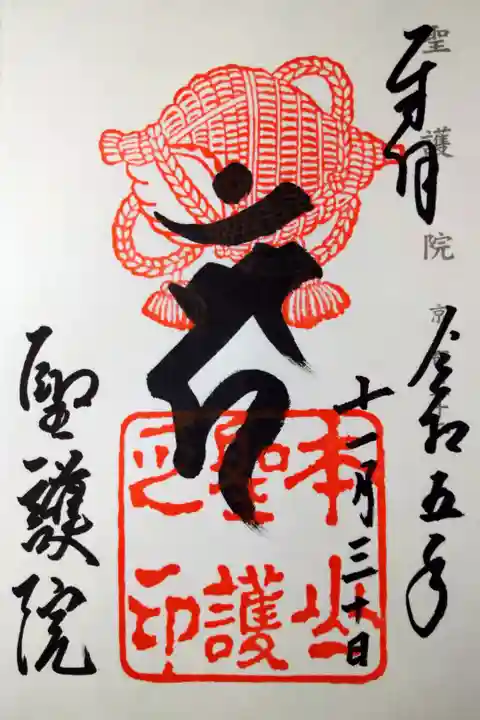 奉拝
聖護院
令和五年
十一月三十日
本山
聖護
之印
聖護院